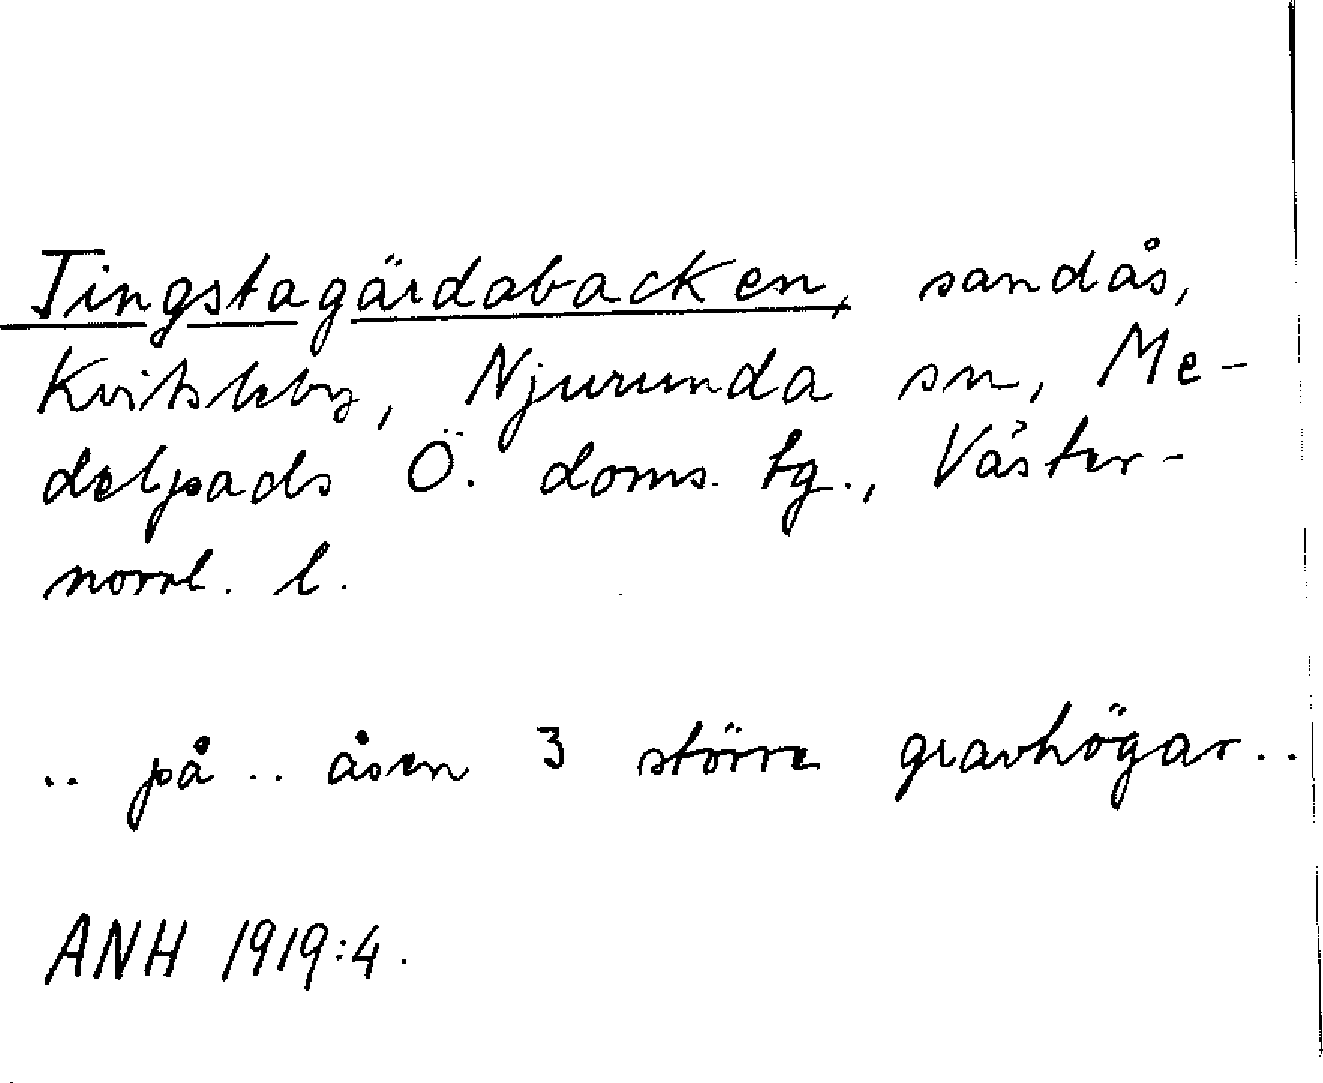 Tingstagärdabacken, sandås,
Kvitsleby, Njurunda sn, Me-
delpads Ö. doms. tg., Väster-
norrl. l.
.. på .. åsen 3 större gravhögar ..
ANH 1919:4.